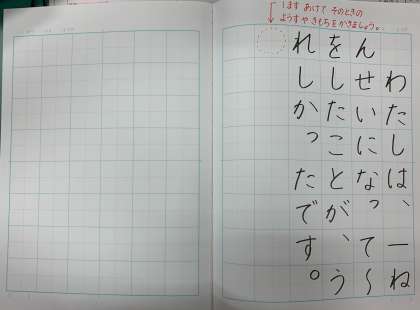 1ます あけて、そのときの
ようすや きもちを かきましょう。
わたしは、一ね
んせいになって〜
をしたことが、う
れしかったです。